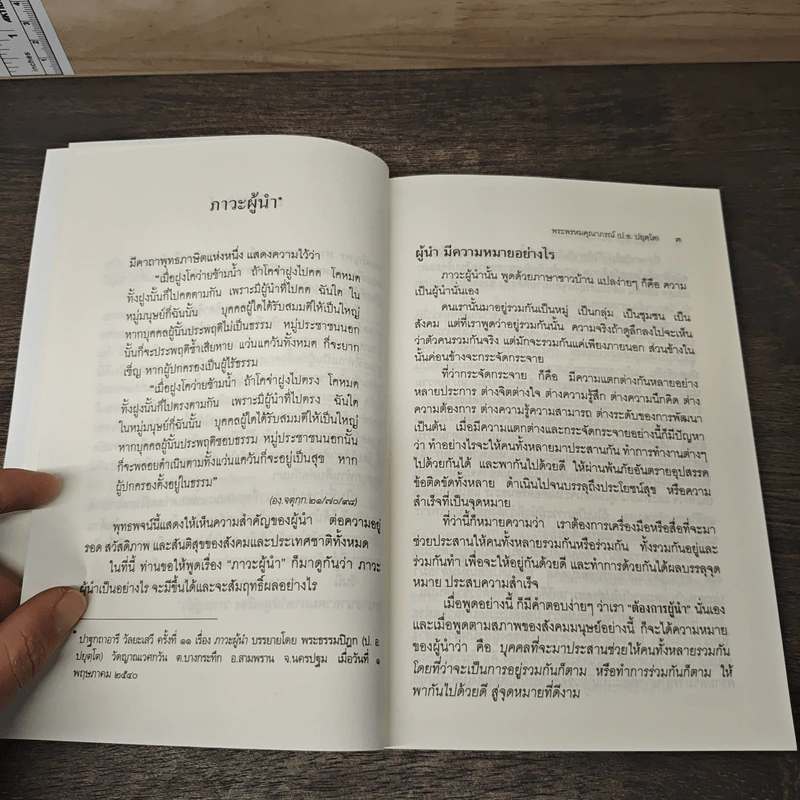 ภาวะผู้นำ*
มีคาถาพุทธภาษิตแห่งหนึ่ง แสดงความไว้ว่า
"เมื่อฝูงโคว่ายข้ามน้ำ ถ้าโคจ่าฝูงไปคด โคหมด
ทั้งฝูงนั้นก็ไปคดตามกัน เพราะมีผู้นำที่ไปคด ฉันใด ใน
หมู่มนุษย์ก็ฉันนั้น บุคคลผู้ใดได้รับสมมติให้เป็นใหญ่
หากบุคคลผู้นั้นประพฤติไม่เป็นธรรม หมู่ประชาชนนอก
นั้นก็จะประพฤติซ้ำเสียหาย แว่นแคว้นทั้งหมด ก็จะยาก
เข็ญ หากผู้ปกครองเป็นผู้ไร้ธรรม
"เมื่อฝูงโคว่ายข้ามน้ำ ถ้าโคจ่าฝูงไปตรง โคหมด
ทั้งฝูงนั้นก็ไปตรงตามกัน เพราะมีผู้นำที่ไปตรง ฉันใด
ในหมู่มนุษย์ก็ฉันนั้น บุคคลผู้ใดได้รับสมมติให้เป็นใหญ่
หากบุคคลผู้นั้นประพฤติชอบธรรม หมู่ประชาชนนอกนั้น
ก็จะพลอยดำเนินตามทั้งแว่นแคว้นก็จะอยู่เป็นสุข หาก
ผู้ปกครองตั้งอยู่ในธรรม"
(องฺ.จตุกฺก.๒๑/๗๐/๙๘)
พุทธพจน์นี้แสดงให้เห็นความสำคัญของผู้นำ ต่อความอยู่
รอด สวัสดิภาพ และสันติสุขของสังคมและประเทศชาติทั้งหมด
ในที่นี้ ท่านขอให้พูดเรื่อง "ภาวะผู้นำ" ก็มาดูกันว่า ภาวะ
ผู้นำเป็นอย่างไร จะมีขึ้นได้และจะสัมฤทธิ์ผลอย่างไร
* ปาฐกถาอารี วัลยะเสวี ครั้งที่ ๑๑ เรื่อง ภาวะผู้นำ บรรยายโดย พระธรรมปิฎก (ป. อ.
ปยุตฺโต) วัดญาณเวศกวัน ต.บางกระทึก อ.สามพราน จ.นครปฐม เมื่อวันที่ ๑
พฤษภาคม ๒๕๔๐
พระพรหมคุณาภรณ์ (ป.อ. ปยุตฺโต) ๓
ผู้นำ มีความหมายอย่างไร
ภาวะผู้นำนั้น พูดด้วยภาษาชาวบ้าน แปลง่ายๆ ก็คือ ความ
เป็นผู้นำนั่นเอง
คนเรานั้นมาอยู่รวมกันเป็นหมู่ เป็นกลุ่ม เป็นชุมชน เป็น
สังคม แต่ที่เราพูดว่าอยู่รวมกันนั้น ความจริงถ้าดูลึกลงไปจะเห็น
ว่าตัวคนรวมกันจริง แต่มักจะรวมกันแค่เพียงภายนอก ส่วนข้างใน
นั้นค่อนข้างจะกระจัดกระจาย
ที่ว่ากระจัดกระจาย ก็คือ มีความแตกต่างกันหลายอย่าง
หลายประการ ต่างจิตต่างใจ ต่างความรู้สึก ต่างความนึกคิด ต่าง
ความต้องการ ต่างความรู้ความสามารถ ต่างระดับของการพัฒนา
เป็นต้น เมื่อมีความแตกต่างและกระจัดกระจายอย่างนี้ก็มีปัญหา
ว่า ทำอย่างไรจะให้คนทั้งหลายมาประสานกัน ทำการทำงานต่างๆ
ไปด้วยกันได้ และพากันไปด้วยดี ให้ผ่านพ้นภัยอันตรายอุปสรรค
ข้อติดขัดทั้งหลาย ดำเนินไปจนบรรลุถึงประโยชน์สุข หรือความ
สำเร็จที่เป็นจุดหมาย
ที่ว่านี้ก็หมายความว่า เราต้องการเครื่องมือหรือสื่อที่จะมา
ช่วยประสานให้คนทั้งหลายรวมกันหรือร่วมกัน ทั้งรวมกันอยู่และ
ร่วมกันทำ เพื่อจะให้อยู่กันด้วยดี และทำการด้วยกันได้ผลบรรลุจุด
หมาย ประสบความสำเร็จ
เมื่อพูดอย่างนี้ ก็มีคำตอบง่ายๆ ว่าเรา "ต้องการผู้นำ" นั่นเอง
และเมื่อพูดตามสภาพของสังคมมนุษย์อย่างนี้ ก็จะได้ความหมาย
ของผู้นำว่า คือ บุคคลที่จะมาประสานช่วยให้คนทั้งหลายรวมกัน
โดยที่ว่าจะเป็นการอยู่รวมกันก็ตาม หรือทำการร่วมกันก็ตาม ให้
พากันไปด้วยดี สู่จุดหมายที่ดีงาม